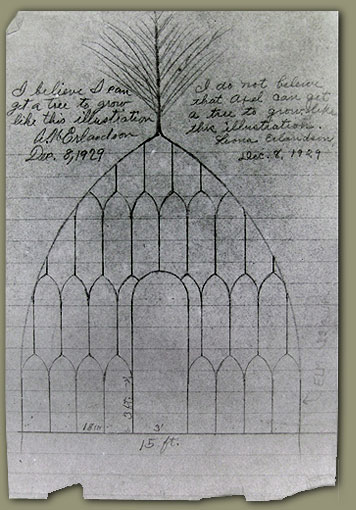 I believe I can
get a tree to grow
like this illustration
A.N. Erlandson
Dec. 8, 1929
I do not believe
that Axel can get
a tree to grow like
this illustration.
Leona Erlandson
Dec. 8, 1929
18 in
3'
15 ft.